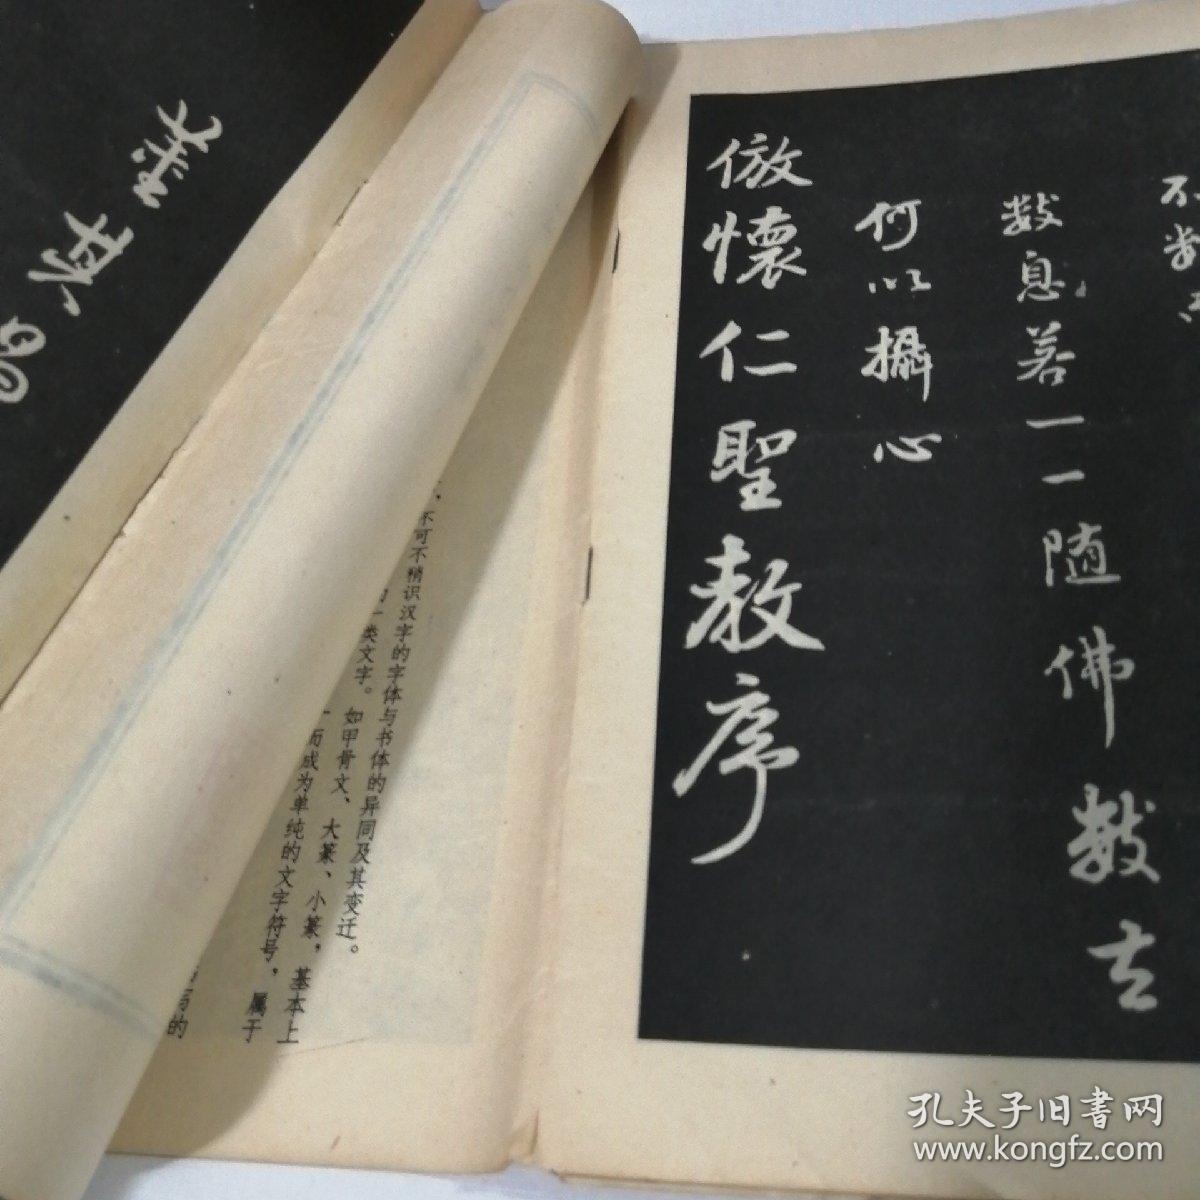 不
数息若一一随佛数去
何以攝心
倣懷仁聖教序
不可不稍识汉字的字体与书体的异同及其变迁。
一类文字。如甲骨文、大篆、小篆,基本上
而成为单纯的文字符号,属于
的
孔夫子旧书网
www.kongfz.com